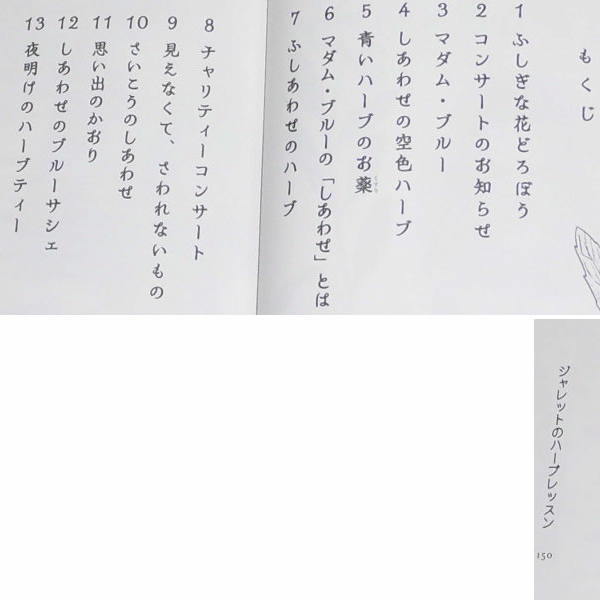 もくじ
1 ふしぎな花どろぼう
2 コンサートのお知らせ
3 マダム・ブルー
4 しあわせの空色ハーブ
5 青いハーブのお薬
くすり
6 マダム・ブルーの「しあわせ」とは
7 ふしあわせのハーブ
8 チャリティーコンサート
9 見えなくて、さわれないもの
10 さいこうのしあわせ
11 思い出のかおり
12 しあわせのブルーサシェ
13 夜明けのハーブティー
ジャレットのハーブレッスン
150